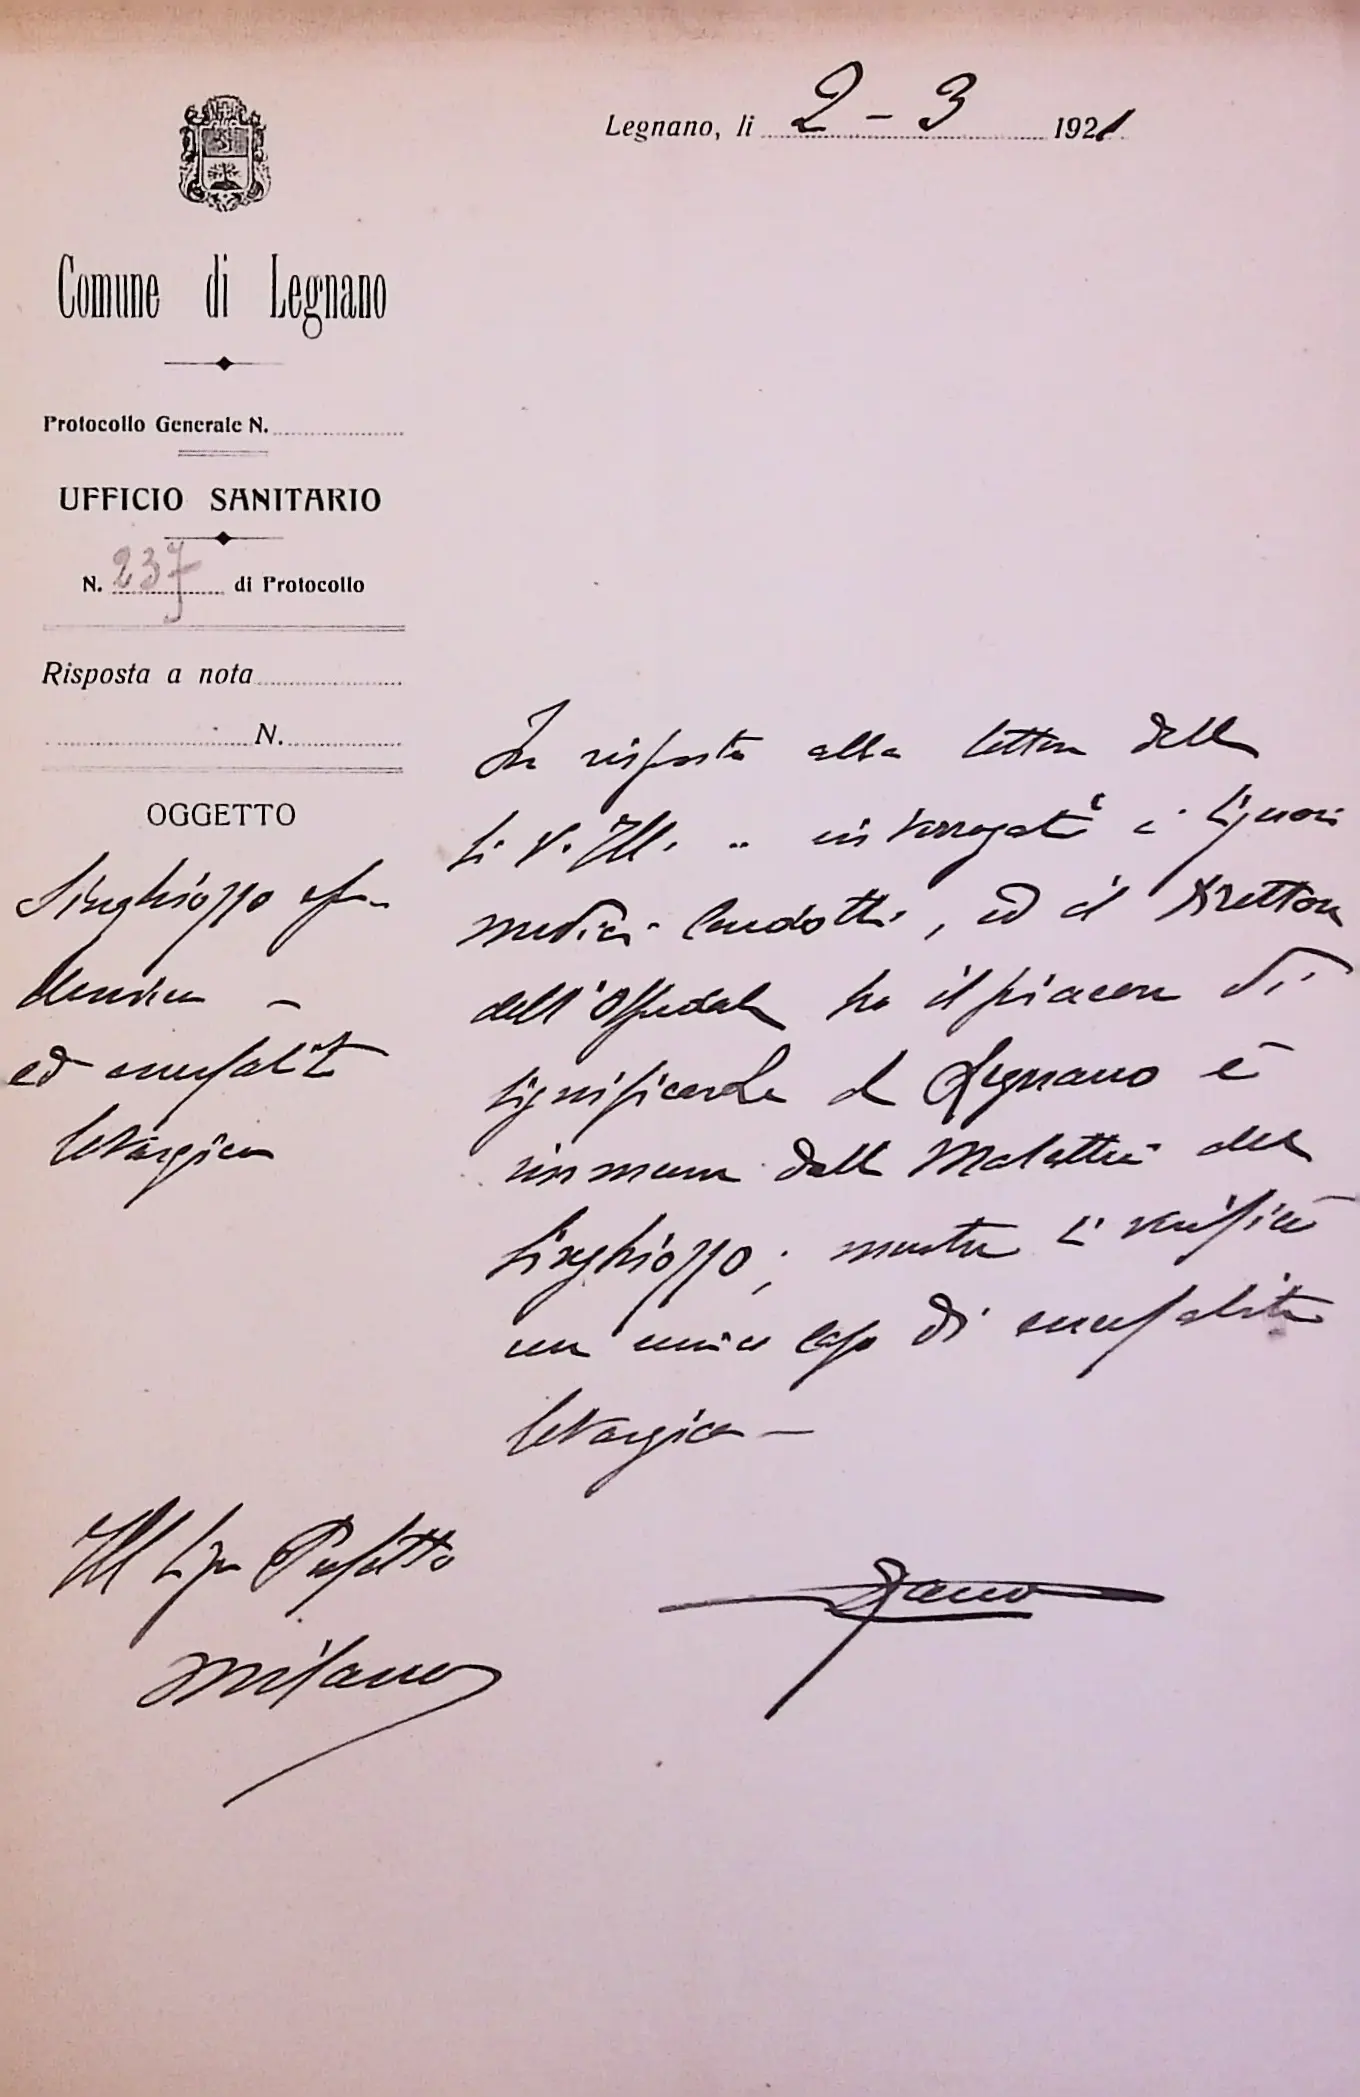 Legnano, li 2 - 3 1921
Comune di Legnano
Protocollo Generale N.
UFFICIO SANITARIO
N. 237 di Protocollo
Risposta a nota
N.
OGGETTO
Singhiozzo epi-
demico -
ed encefalite
letargica
In risposta alla lettera della
S. V. Ill. interrogati i Signori
medici Condotti, ed il Direttore
dell'Ospedale ho il piacere di
significarLe Legnano è
immune dalla Malattia del
Singhiozzo; mentre si verificò
un unico caso di encefalite
letargica -
Ill Sign Prefetto
Milano